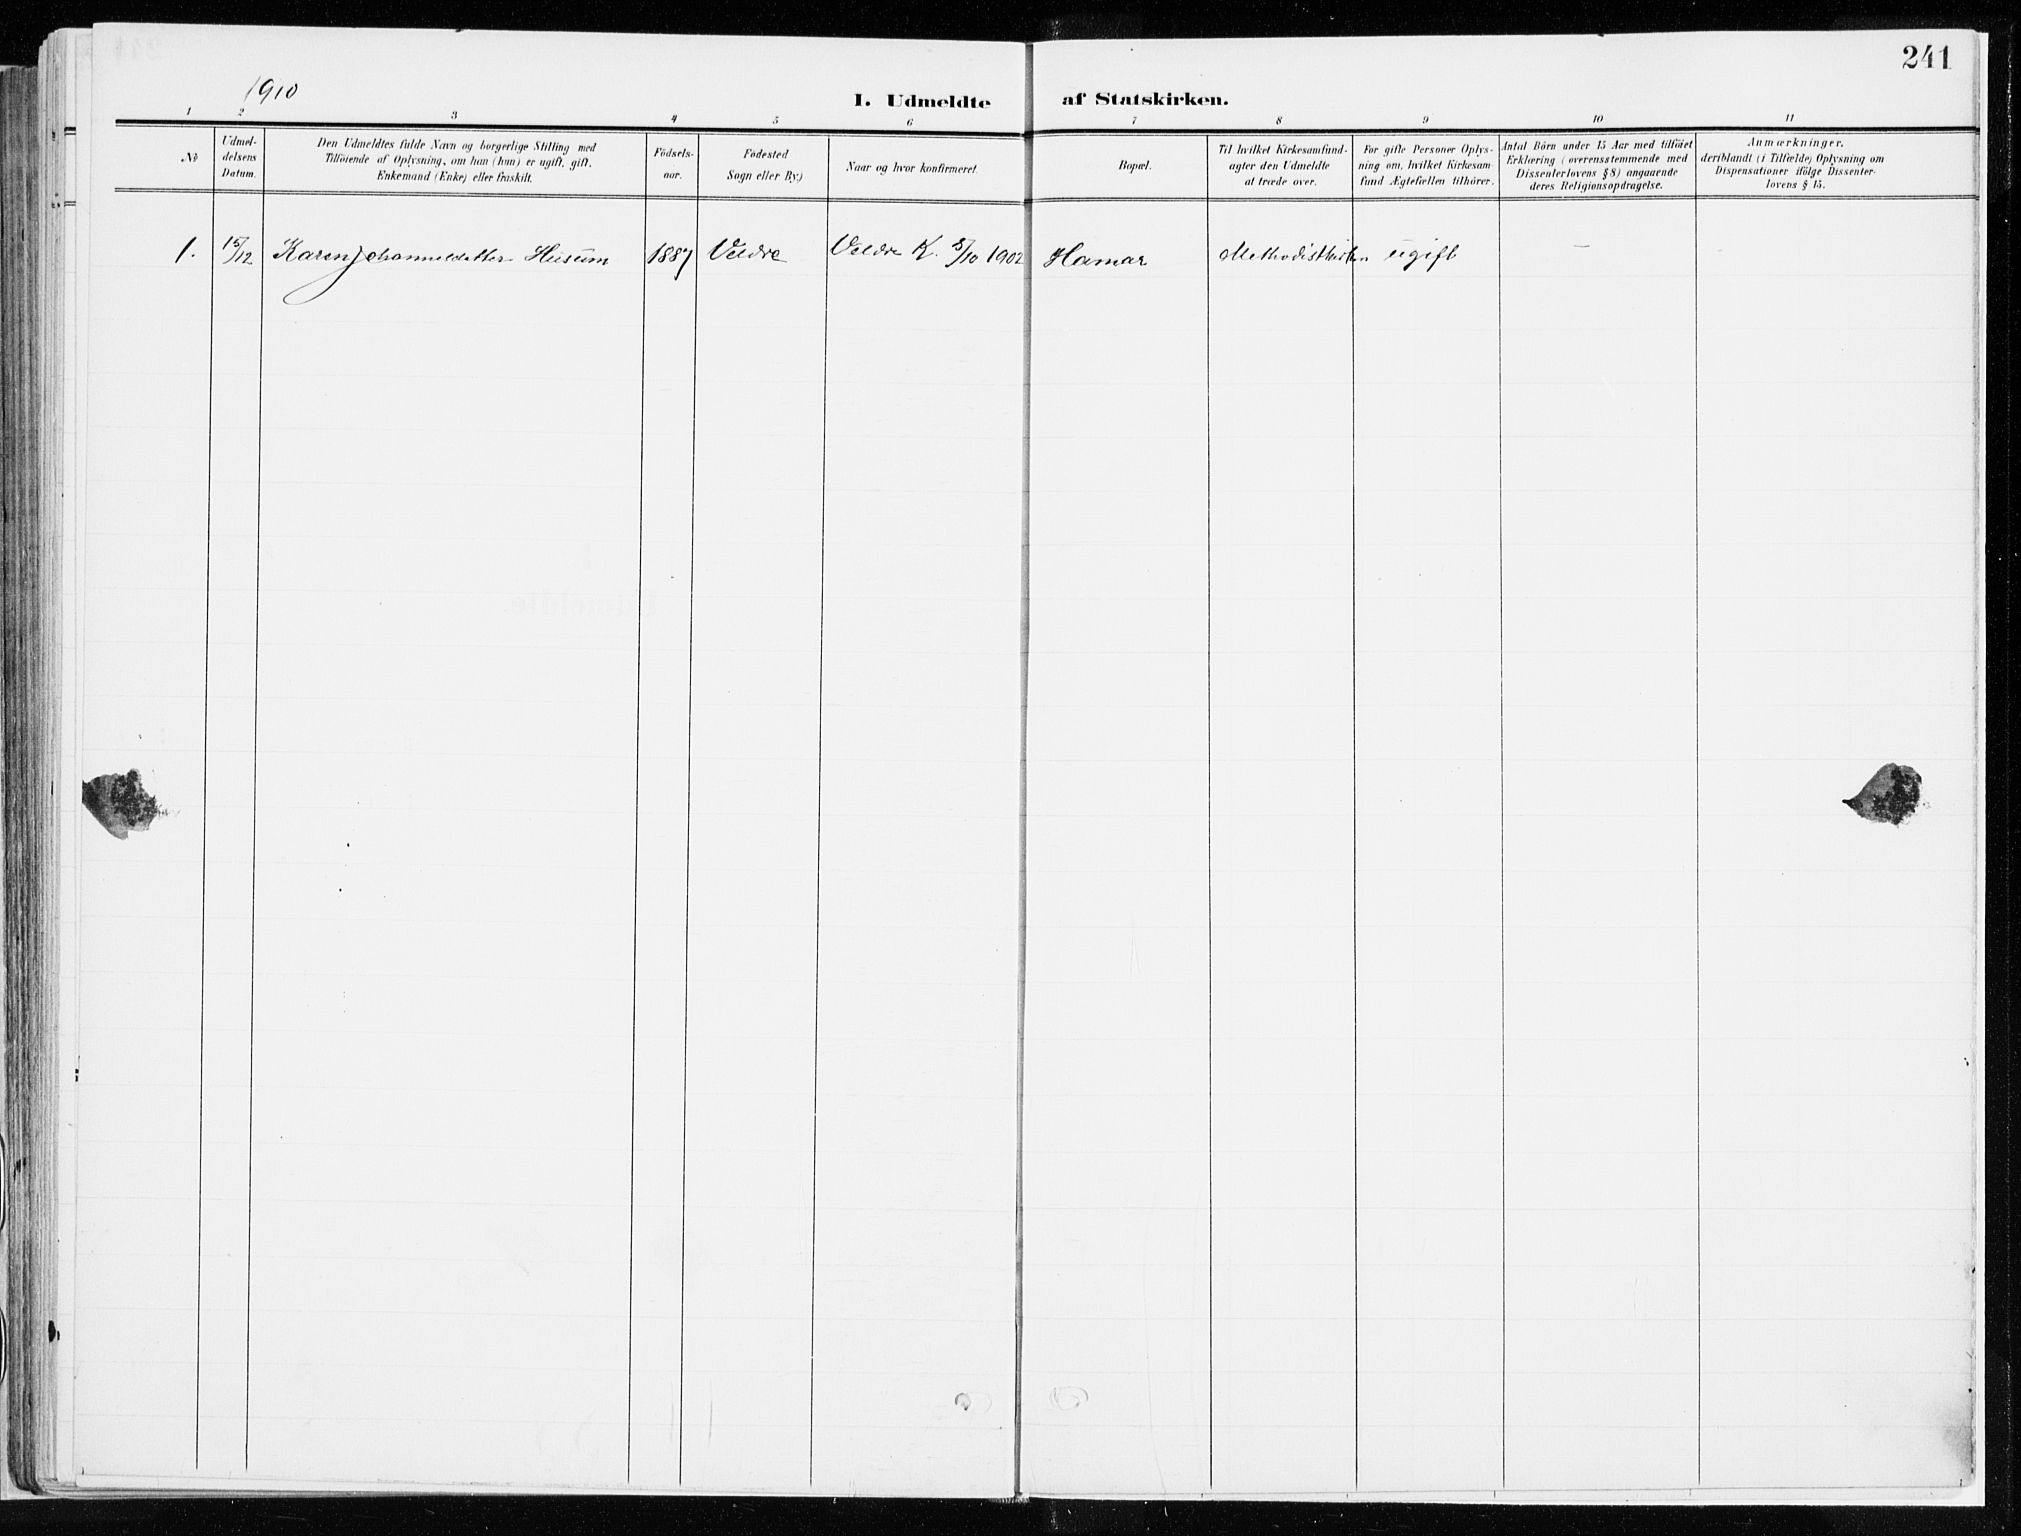 241
1910
I. Udmeldte af Statskirken.
1 2 3 4 5 6 7 8 9 10 11
No
Udmel-
delsens
Datum.
Den Udmeldtes fulde Navn og borgerlige Stilling med
Tilföiende af Oplysning, om han (hun) er ugift, gift,
Enkemand (Enke) eller fraskilt.
Födsels-
aar.
Födested
Sogn eller By.)
Naar og hvor konfirmeret.
Bopæl.
Til hvilket Kirkesamfund-
agter den Udmeldte
at træde over.
For gifte Personer Oplys-
ning om, hvilket Kirkesam-
fund Ægtefællen tilhörer.
Antal Börn under 15 Aar med tilföiet
Erklæring (overensstemmende med
Dissenterlovens § 8) angaaende
deres Religionsopdragelse.
Anmerkninger.
deriblandt (i Tilfælde) Oplysning om
Dispensationer ifölge Dissenter-
lovens § 15.
1. 15/12 Karen Johannesdatter Husum 1887 Veldre Veldre K. 5/10 1902 Hamar Methodistkirken ugift —